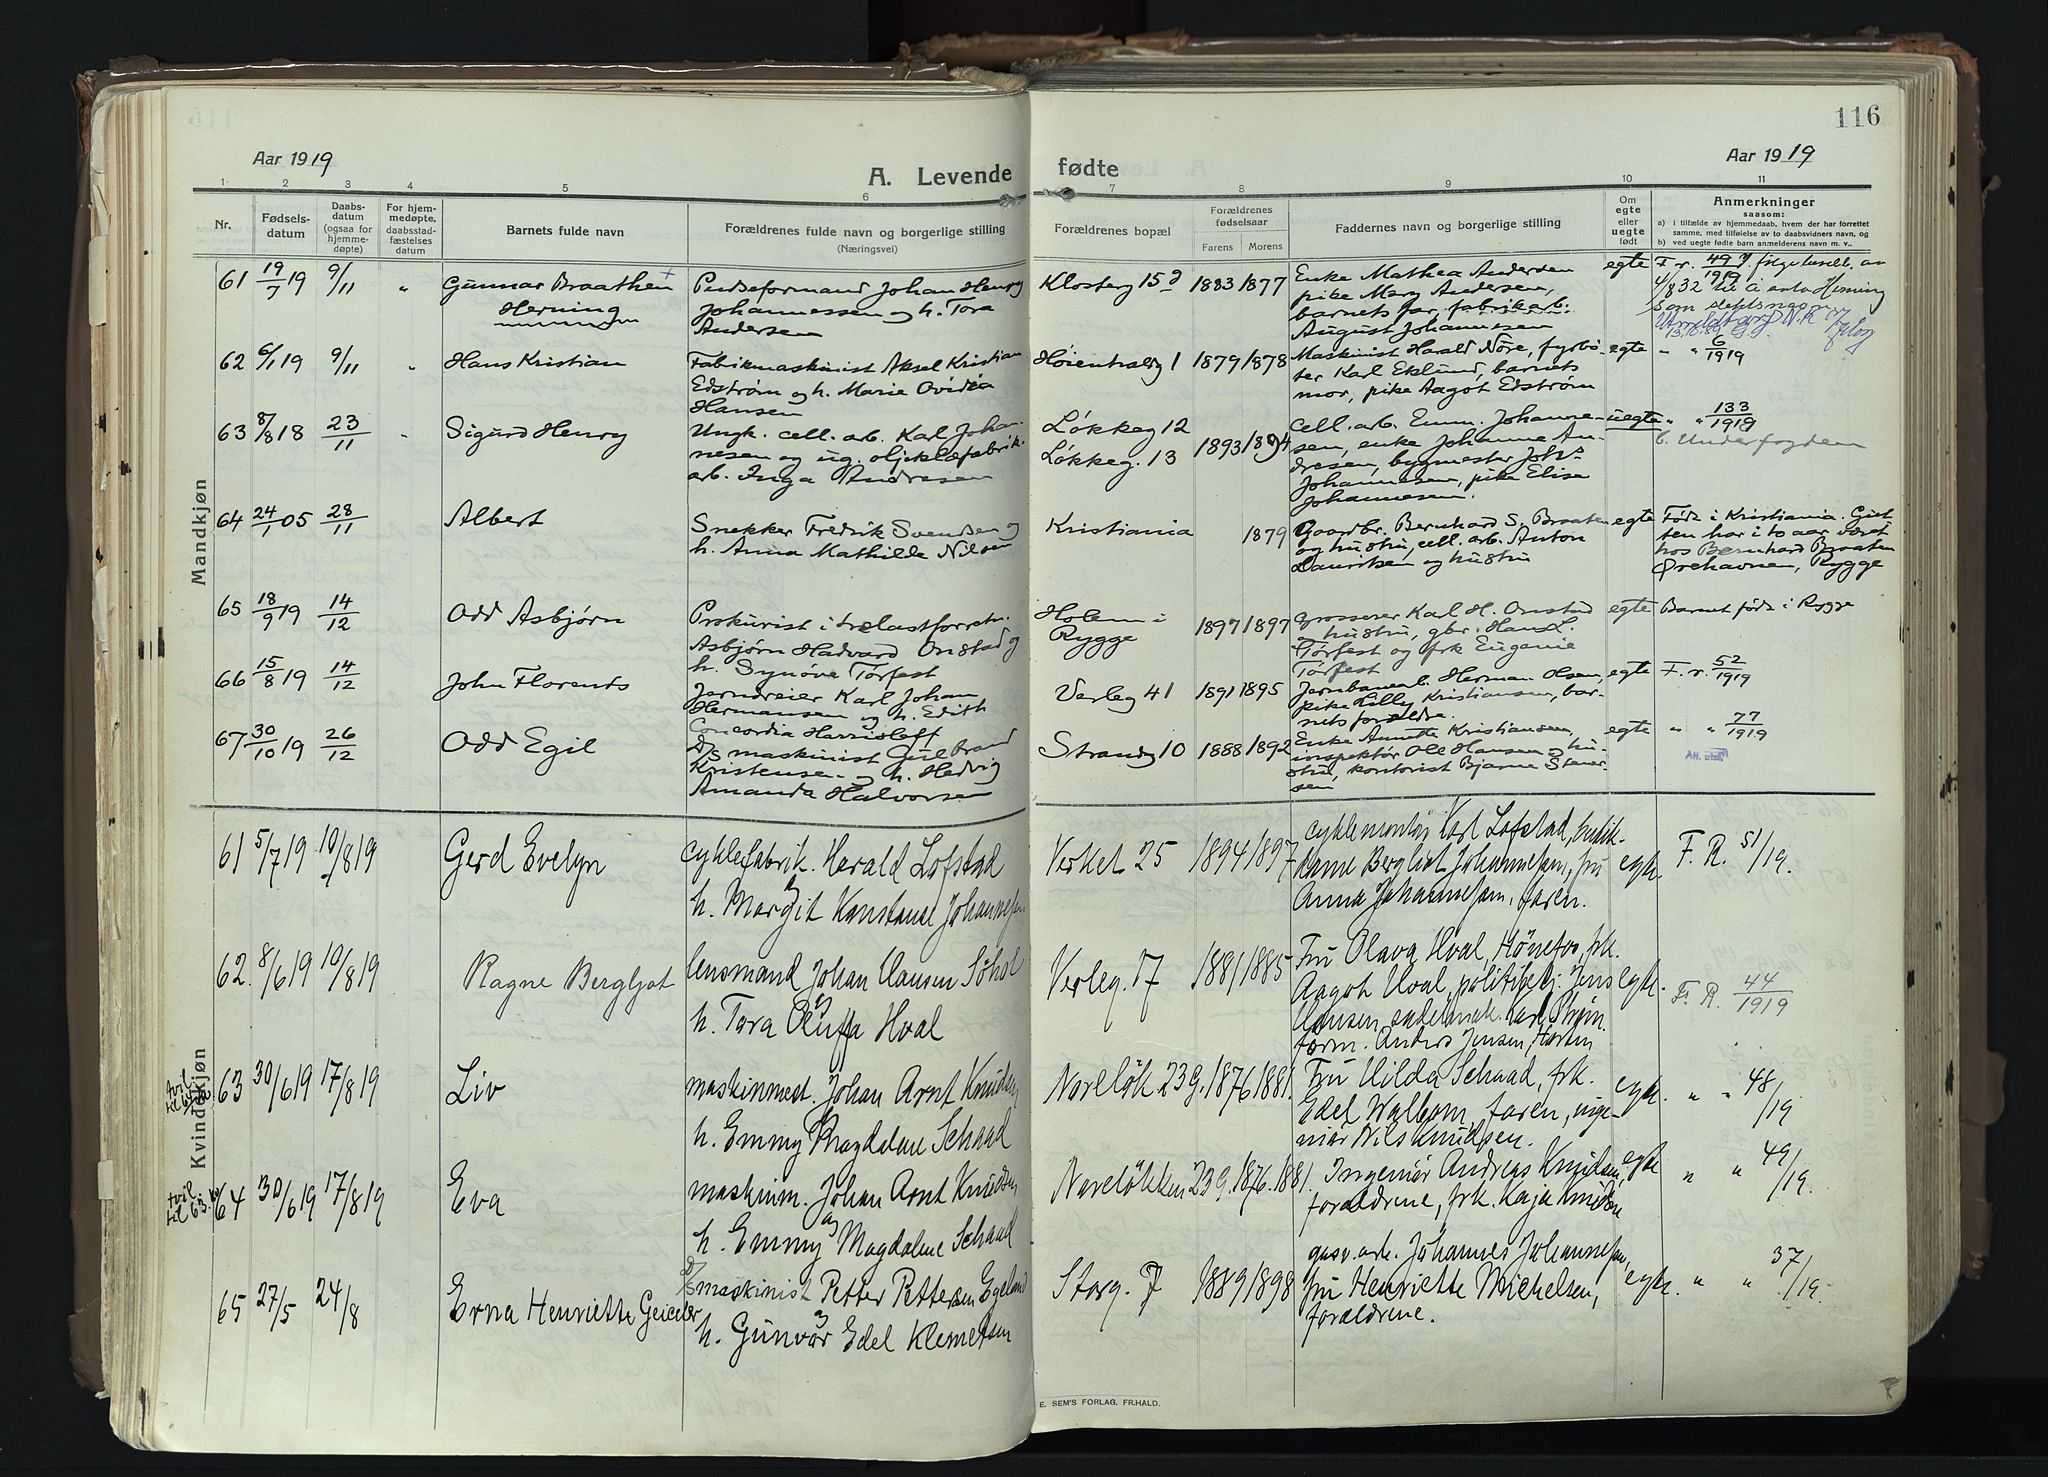 116
Aar 1919
A. Levende fødte
Aar 1919
1 2 3 4 5 6 7 8 9 10 11
Nr.
Fødsels-
datum
Daabs-
datum
(ogsaa for
hjemme-
døpte)
For hjem-
medøpte,
daabsstad-
fæstelses
datum
Barnets fulde navn
Forældrenes fulde navn og borgerlige stilling
(Næringsvei)
Forældrenes bopæl
Forældrenes
fødselsaar
Farens Morens
Faddernes navn og borgerlige stilling
Om
egte
eller
uegte
født
Anmerkninger
saasom:
a) i tilfælde av hjemmedaab, hvem der har forrettet
samme, med tilføielse av to daabsvidners navn, og
b) ved uegte fødte barn anmelderens navn m. v.,
Mandkjøn
61 19/7 19 9/11 " Gunnar Braathen +
Herning
Pudseformand Johan Henry
Johannessen og h. Tora
Andersen
Klosterg 15 d 1883 1877
Enke Mathea Andersen
pike Mary Andersen,
barnets far, fabrikarb.
August Johannesen
egte F. r. 49/1919
62 6/1 19 9/11 " Hans Kristian
Fabrikmaskinist Aksel Kristian
Edstrøm og h. Marie Ovidia
Hansen
Høientraldg 1 1879 1878
Maskinist Harald Nöre, fyrbø-
ter Karl Eklund, barnets
mor, pike Aagot Edstrøm
egte " " 6/1919
63 8/8 18 23/11 " Sigurd Henry
Ungk. cell. arb. Karl Johan-
nesen og ug. oljeklæfabrik-
arb. Inga Andresen
Løkkeg 12
Løkkeg. 13
1893 1894
cell. arb. Emm. Johanne-
sen, enke Johanne An-
dresen, bygmester Johs
Johannesen, pike Elise
Johannesen.
uegte " " 133/1919
b. Underfogden
64 24/1 05 28/11 Albert
Snekker Fredrik Svendsen og
h. Anna Mathilde Nilsen
Kristiania 1879
Gaardbr. Bernhard S. Braaten
og hustru, cell. arb. Anton
Lauritsen og hustru
egte Født i Kristiania. Gut-
ten har i to aar været
hos Bernhard Braaten
Ørehavnen, Rygge
65 18/9 19 14/12 Odd Asbjørn
Prokurist i trelastforretn.
Asbjørn Hadvard Onstad og
h. Synøve Tørfest
Holem i
Rygge
1897 1897
Grosserer Karl H. Onstad
og hustru, gbr. Hans L.
Tørfest og frk Eugenie
Tørfest
egte Barnet født i Rygge
66 15/8 19 14/12 John Florents
Jerndreier Karl Johan
Hermansen og h. Edith
Concordia Harrisleff
Verleg 41 1891 1895
Jernbanearb. Herman Olsen,
pike Lilly Kristiansen, bar-
nets forældre.
egte F. r. 52/1919
67 30/10 19 26/12 Odd Egil
D/s maskinist Gulbrand
Kristensen og h. Hedvig
Amanda Halvorsen
Strandg 10 1888 1892
Enke Annette Kristiansen,
inspektør Ole Hansen og hu-
stru, kontorist Bjarne Stener-
sen
egte " " 77/1919
Att. utst.
Kvindekjøn
61 5/7 19 10/8 19 Gerd Evelyn
cyklefabrik. Harald Lofstad
og
h. Margit Konstanse Johannesen
Verket 25 1894 1897
cyklemontør Karl Lofstad, butik-
dame Bergliot Johannesen, fru
Anna Johannesen, faren.
egte. F. R. 51/19.
62. 8/6 19 10/8 19 Ragne Bergljot
lensmand Johan Hansen Søhol
og
h. Tora Oluffa Hval
Verleg. 17 1881 1885
Fru Olava Hval, Hönefos, frk.
Aagot Hval, politibetj. Jens
Hansen, sadelmak. Karl Thim.
form. Anders Jensen, Horten
egte. F. R. 44/1919
tvil.
til 64
63 30/6 19 17/8 19 Liv
maskinmest. Johan Arnt Knudsen
h. Emmy Magdalene Schaad
Noreløk 23 g. 1876 1881.
Fru Hilda Schaad, frk.
Edel Walbom, faren, inge-
niør Nils Knudsen.
egte. " " 48/19
tvil
til 63.
64 30/6 19 17/8 19 Eva
maskinm. Johan Arnt Knudsen
og
h. Emmy Magdalene Schaad
Noreløkken 23 g. 1876. 1881.
Ingeniør Andreas Knudsen,
forældrene, frk. Kaja Knudsen
egte " " 49/19.
65 27/5 24/8 Erna Henriette Geiceler
D/s maskinist Petter Pettersen Egeland
og
h. Gunvor Edel Klemetsen
Storg. 7 1889 1898
gasv. arb. Johannes Johannesen,
fru Henriette Michelsen,
forældrene.
egte. " " 37/19.
E. SEM'S FORLAG, FR.HALD.